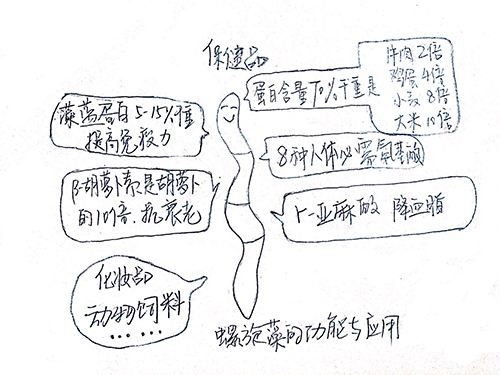 保健品
蛋白含量70%干重是
牛肉2倍
鸡蛋4倍
小麦8倍
大米10倍
藻蓝蛋白5-15%干重
提高免疫力
8种人体必需氨基酸
β-胡萝卜素是胡萝卜
的10倍、抗衰老
γ-亚麻酸 降血脂
化妆品
动物饲料
……
螺旋藻的功能与应用